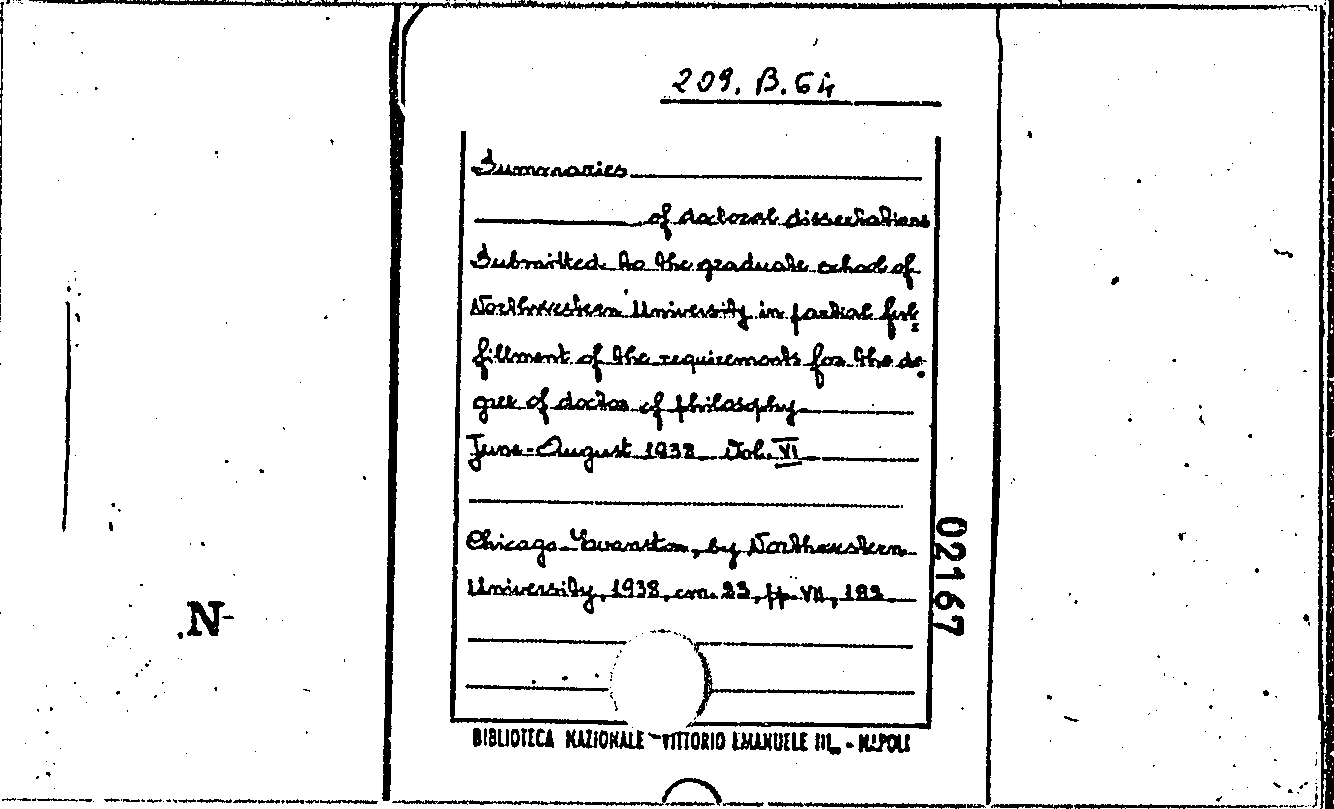 209. B. 64
Summaries
of doctoral dissertations
Submitted to the graduate school of
Northwestern University in partial ful=
fillment of the requirements for the de-
gree of doctor of philosophy
June-August 1938 Vol. VI
Chicago-Evanston, by Northwestern
University, 1938, cm. 23, pp. VII, 182
02167
N-
BIBLIOTECA NAZIONALE - VITTORIO EMANUELE III - NAPOLI